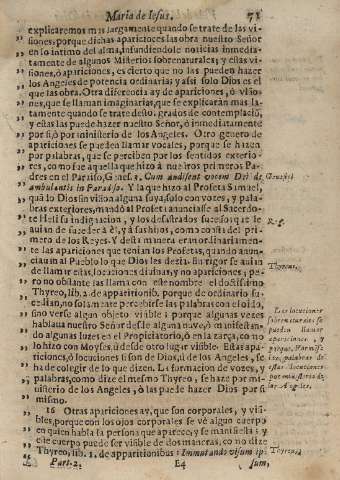 Maria de Iesus. 71
explicaremos mas largamente quando se trate de las vi-
siones: porque dichas apariciones las obra nuestro Señor
en lo intimo del alma, infundiendole noticias inmedia-
tamente de algunos Misterios sobrenaturales; y estas vi-
siones, ò apariciones, es cierto que no las pueden hazer
los Angeles de potencia ordinaria; y assi solo Dios es el
que las obra. Otra diferencia ay de apariciones, ò visio-
nes, que se llaman imaginarias, que se explicaràn mas la-
tamente quando se trate destos grados de contemplaciõ,
y estas las puede hazer nuestro Señor, ò inmediatamente
por sì, ò por ministerio de los Angeles. Otro genero de
apariciones se pueden llamar vocales, porque se hazen
por palabras, que se perciben por los sentidos exterio-
res, como fue aquella que hizo à nuestros primeros Pa-
dres en el Paraiso, Genes. 3. Cum audissent vocem Dei de-
ambulantis in Paradiso. Y la que hizo al Profeta Samuel,
que lo Dios sin vision alguna suya, solo con vozes, y pala-
bras exteriores, mandò al Profeta anunciasse al Sacerdo-
te Heli su indignacion, y los desastrados sucessos que le
auian de suceder à èl, y à sus hijos, como consta del pri-
mero de los Reyes. Y desta manera eran ordinariamen-
te las apariciones que tenian los Profetas, quando anun-
ciauan al Pueblo lo que Dios les dezia. En rigor se auian
de llamar estas, locuciones diuinas, y no apariciones; pe-
ro no obstante las llama con este nombre el doctissimo
Thyreo, lib. 2. de apparitionib. porque de ordinario su-
cedian, no solamente percebirse las palabras con el oìdo,
sino verse algun objeto visible: porque algunas vezes
hablaua nuestro Señor desde alguna nuue, ò manifestan-
do algunas luzes en el Propiciatorio, ò en la zarça, como
lo hizo con Moyses, ò desde otro lugar visible. Estas apa-
riciones, ò locuciones si son de Dios, ù de los Angeles, se
ha de colegir de lo que dizen. La formacion de vozes, y
palabras, como dize el mesmo Thyreo, se haze por mi-
nisterio de los Angeles, ò las puede hazer Dios por sì
mismo.
16 Otras apariciones ay, que son corporales, y visi-
bles, porque con los ojos corporales se vè algun cuerpo
en quien habla la persona que aparece, y se manifiesta; y
este cuerpo puede ser visible de dos maneras, como dize
Thyreo, lib. 1. de apparitionibus: Immutando visum ip-
Part. 2. E4 sum,
Genes. 3.
1. Reg.
Thyreus.
Las locuciones
sobrenaturales se
pueden llamar
apariciones, y
porque. Formase
las palabras de
estas locuciones
por ministerio de
los Angeles.
Thyreus.